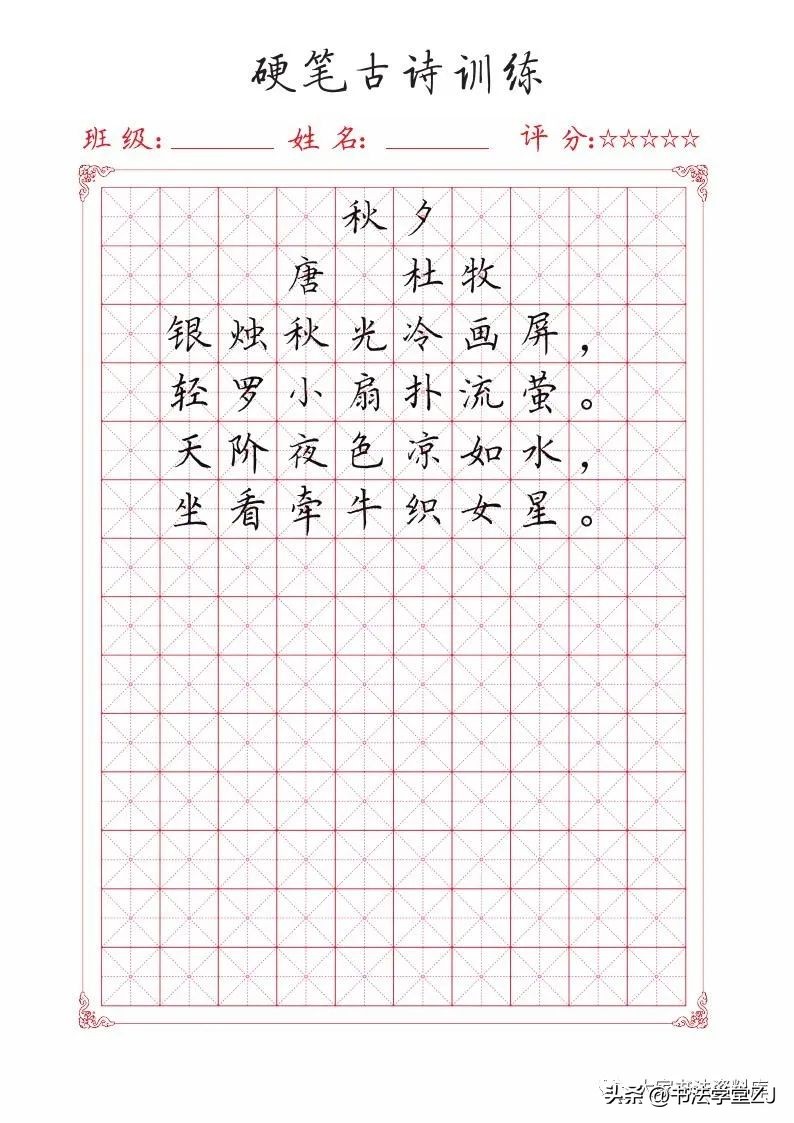 硬笔古诗训练
班级：________ 姓名：________ 评分：☆☆☆☆☆
秋夕
唐 杜牧
银烛秋光冷画屏，
轻罗小扇扑流萤。
天阶夜色凉如水，
坐看牵牛织女星。
大家书法资料库
头条@书法学堂ZJ